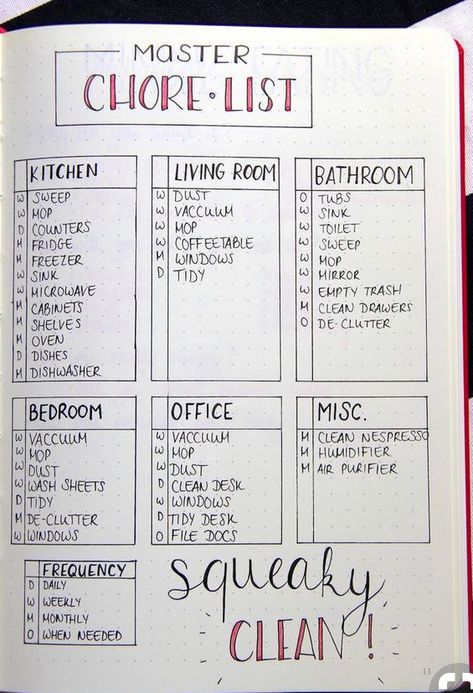 MASTER
CHORE • LIST
KITCHEN
W SWEEP
W MOP
D COUNTERS
M FRIDGE
M FREEZER
W SINK
W MICROWAVE
M CABINETS
M SHELVES
M OVEN
D DISHES
M DISHWASHER
LIVING ROOM
W DUST
W VACCUUM
W MOP
W COFFEETABLE
M WINDOWS
D TIDY
BATHROOM
O TUBS
W SINK
W TOILET
W SWEEP
W MOP
W MIRROR
W EMPTY TRASH
M CLEAN DRAWERS
O DE-CLUTTER
BEDROOM
W VACCUUM
W MOP
W DUST
W WASH SHEETS
D TIDY
M DE-CLUTTER
W WINDOWS
OFFICE
W VACCUUM
W MOP
W DUST
D CLEAN DESK
W WINDOWS
D TIDY DESK
O FILE DOCS
MISC.
M CLEAN NESPRESSO
M HUMIDIFIER
M AIR PURIFIER
FREQUENCY
D DAILY
W WEEKLY
M MONTHLY
O WHEN NEEDED
squeaky
CLEAN!
13